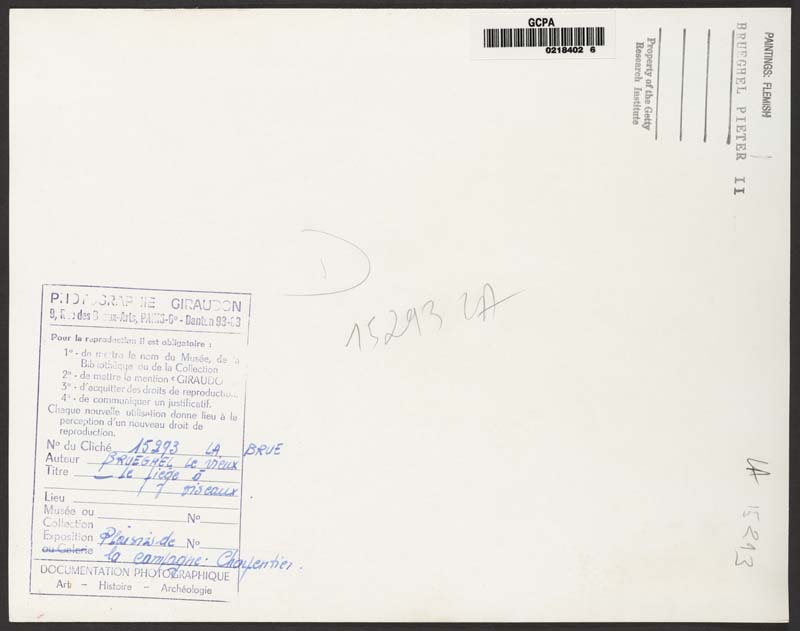 GCPA
0218402 6
PAINTINGS: FLEMISH
BRUEGHEL PIETER II
Property of the Getty
Research Institute
D
15293 LA
PHOTOGRAPHIE GIRAUDON
9, Rue des Beaux-Arts, PARIS-6e - Danton 93-83
Pour la reproduction il est obligatoire :
1° - de mettre le nom du Musée, de la
Bibliothèque ou de la Collection
2° - de mettre la mention « GIRAUDO
3° - d'acquitter des droits de reproductio...
4° - de communiquer un justificatif.
Chaque nouvelle utilisation donne lieu à la
perception d'un nouveau droit de
reproduction.
N° du Cliché 15293 LA BRUE
Auteur BRUEGHEL Le Vieux
Titre Le Piège à
oiseaux.
Lieu
Musée ou
Collection N°
Exposition Plaisirs de N°
ou Galerie la campagne - Charpentier.
DOCUMENTATION PHOTOGRAPHIQUE
Art - Histoire - Archéologie
LA 15293